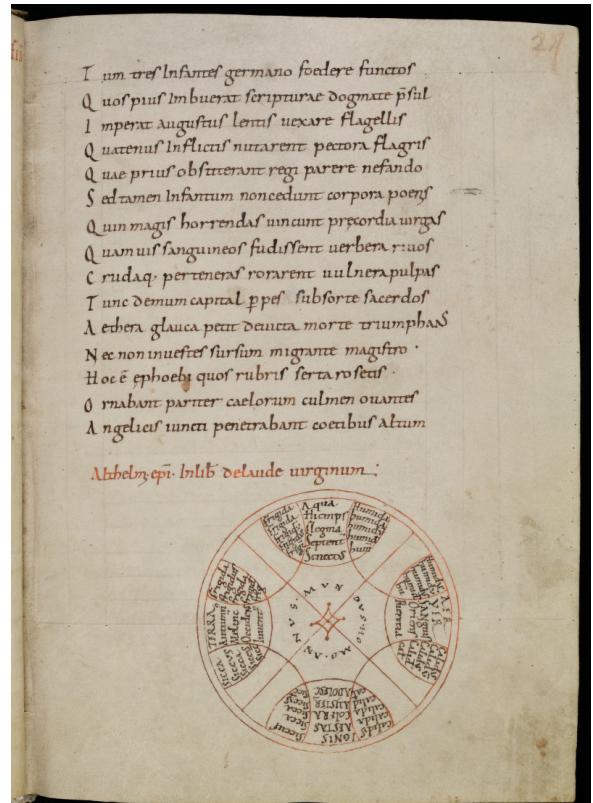 T um tres Infantes germano foedere functos
Q uos pius Imbuerat scripturae dogmate p̄sul
I mperat augustus lentis uexare flagellis
Q uatenus Inflictis nutarent pectora flagris
Q uae prius obstiterant regi parere nefando
S ed tamen Infantum non cedunt corpora poenis
Q uin magis horrendas uincunt pręcordia uirgas
Q uam uis sanguineos fudissent uerbera riuos
C rudaq; per teneras rorarent uulnera pulpas
T unc demum capital p̄pes subsorte sacerdos
A ethera glauca petit deuicta morte triumphans
N ec non inuestes sursum migrante magistro .
H oc ē ephoebi quos rubris serta rosetis .
O rnabant pariter caelorum culmen ouantes
A ngelicis iuncti penetrabant coetibus altum
Althelm; ep̄i. In lib̄ de laude uirginum :
AQUA
Hiemps
flegma
Septent
Senectus
frigida
frigida
humida
humida
humida
hum
AER
VER
Sangui
Oriens
Pueritia
humida
calida
MUNDUS
ANNUS
HOMO
TERRA
Autumn
Melanc
Occidens
Iuuent
frigida
frigida
sicca
IGNIS
AESTAS
COLERA
AUSTER
ADOLESC
calida
calida
calida
sicca
sicca
sicca